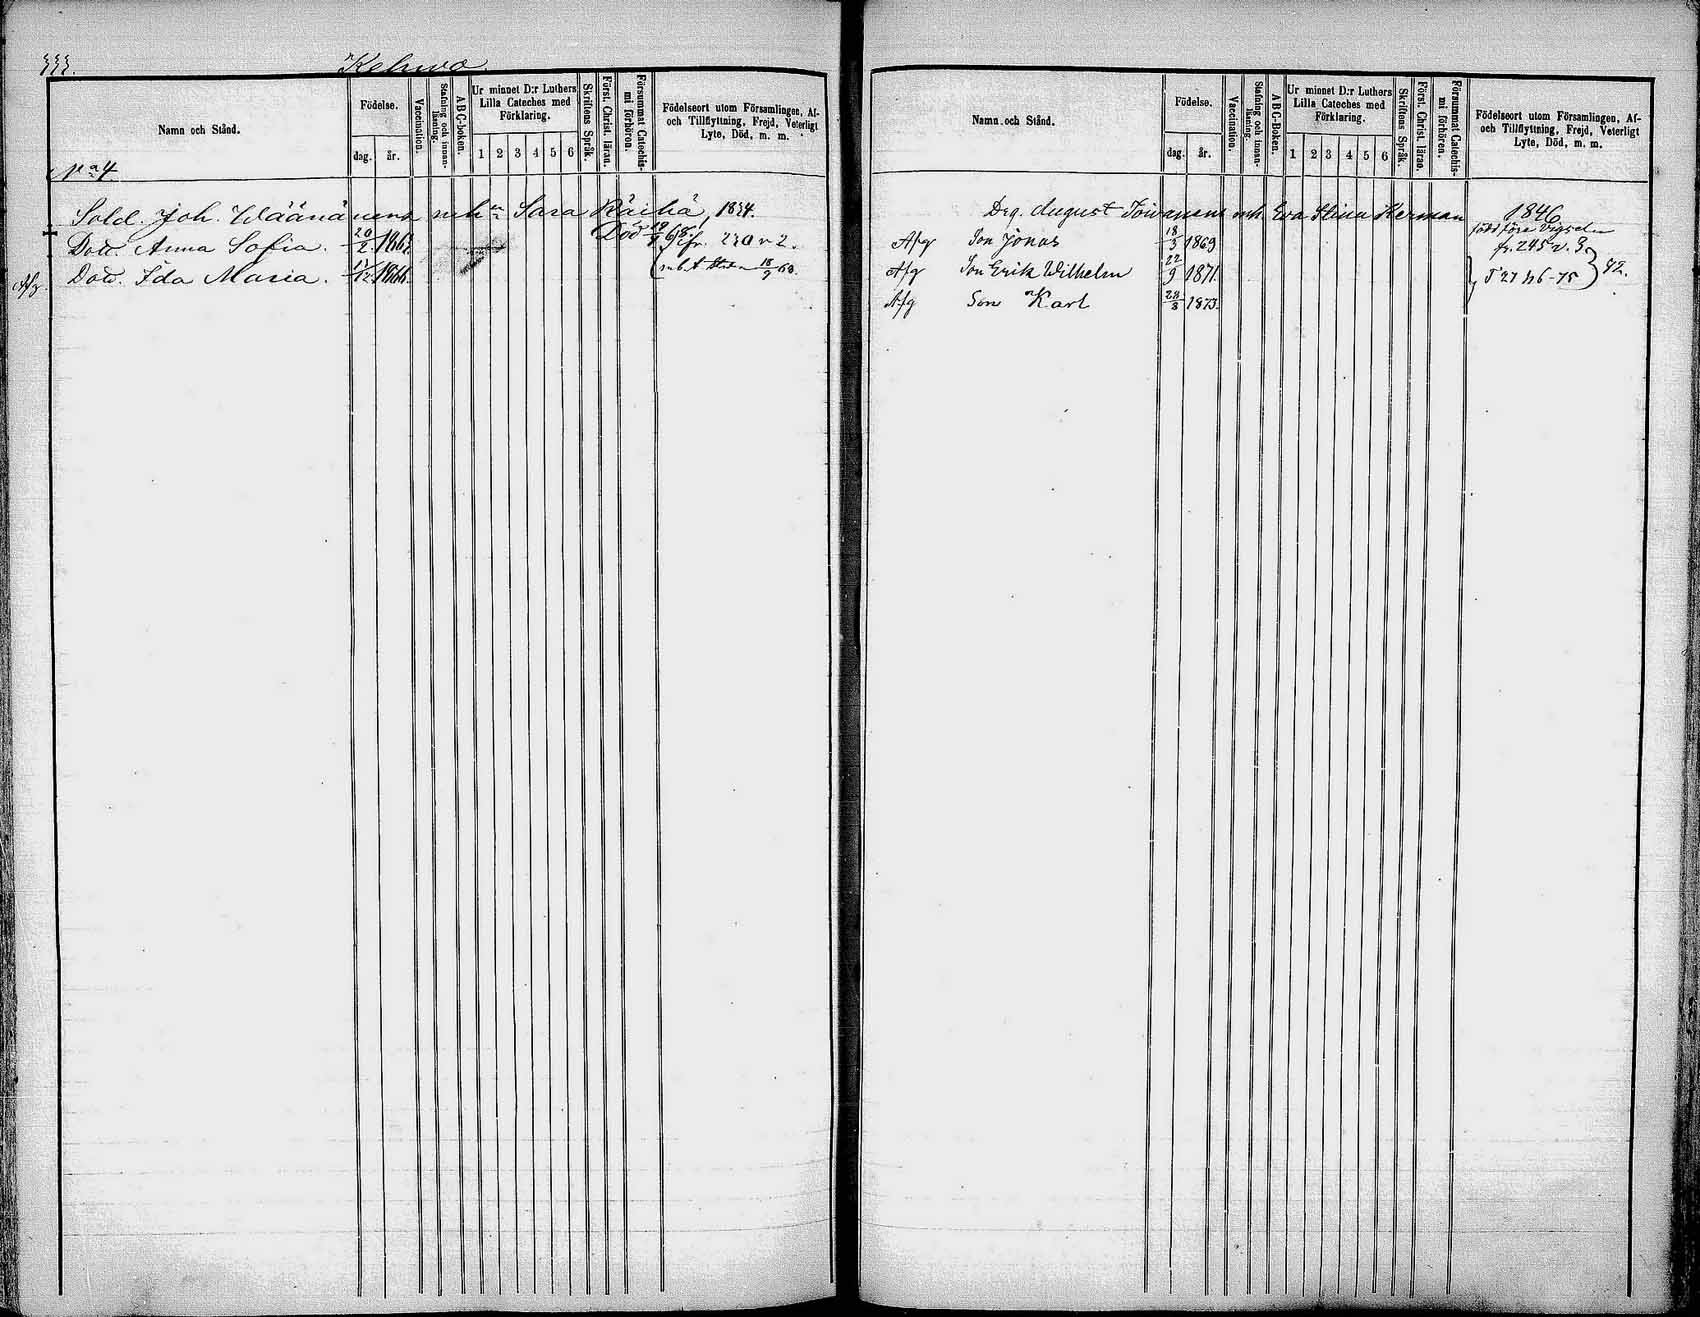 333.
Kelwo
Namn och Stånd.
Födelse.
dag.
år.
Vaccination.
Stafning och innan-
läsning.
A B C-boken.
Ur minnet D:r Luthers
Lilla Cateches med
Förklaring.
1 2 3 4 5 6
Skriftens Språk.
Först. Christ. läran.
Försummat Catechis-
mi förhören.
Födelseort utom Församlingen, Af-
och Tillflyttning, Frejd, Veterligt
Lyte, Död, m. m.
N:o 4
Sold. Joh. Wäänänens enk:a Sara Räihä, 1834.
Dott. Anna Sofia. 20/2 1863. Död 19/9 68. fr. 230 v 2.
Afg. Dott. Ida Maria. 1866. 18/9 68.
Namn och Stånd.
Födelse.
dag.
år.
Vaccination.
Stafning och innan-
läsning.
A B C-boken.
Ur minnet D:r Luthers
Lilla Cateches med
Förklaring.
1 2 3 4 5 6
Skriftens Språk.
Först. Christ. läran.
Försummat Catechis-
mi förhören.
Födelseort utom Församlingen, Af-
och Tillflyttning, Frejd, Veterligt
Lyte, Död, m. m.
Drg. August Toivanens enk. Eva Stina Herman 1846
Afg Son Jonas 18/3 1869 född före vigseln
fr. 245 v. 3
Afg Son Erik Wilhelm 22/9 1871 T 27 h6-75 42.
Afg Son Karl 28/8 1873.